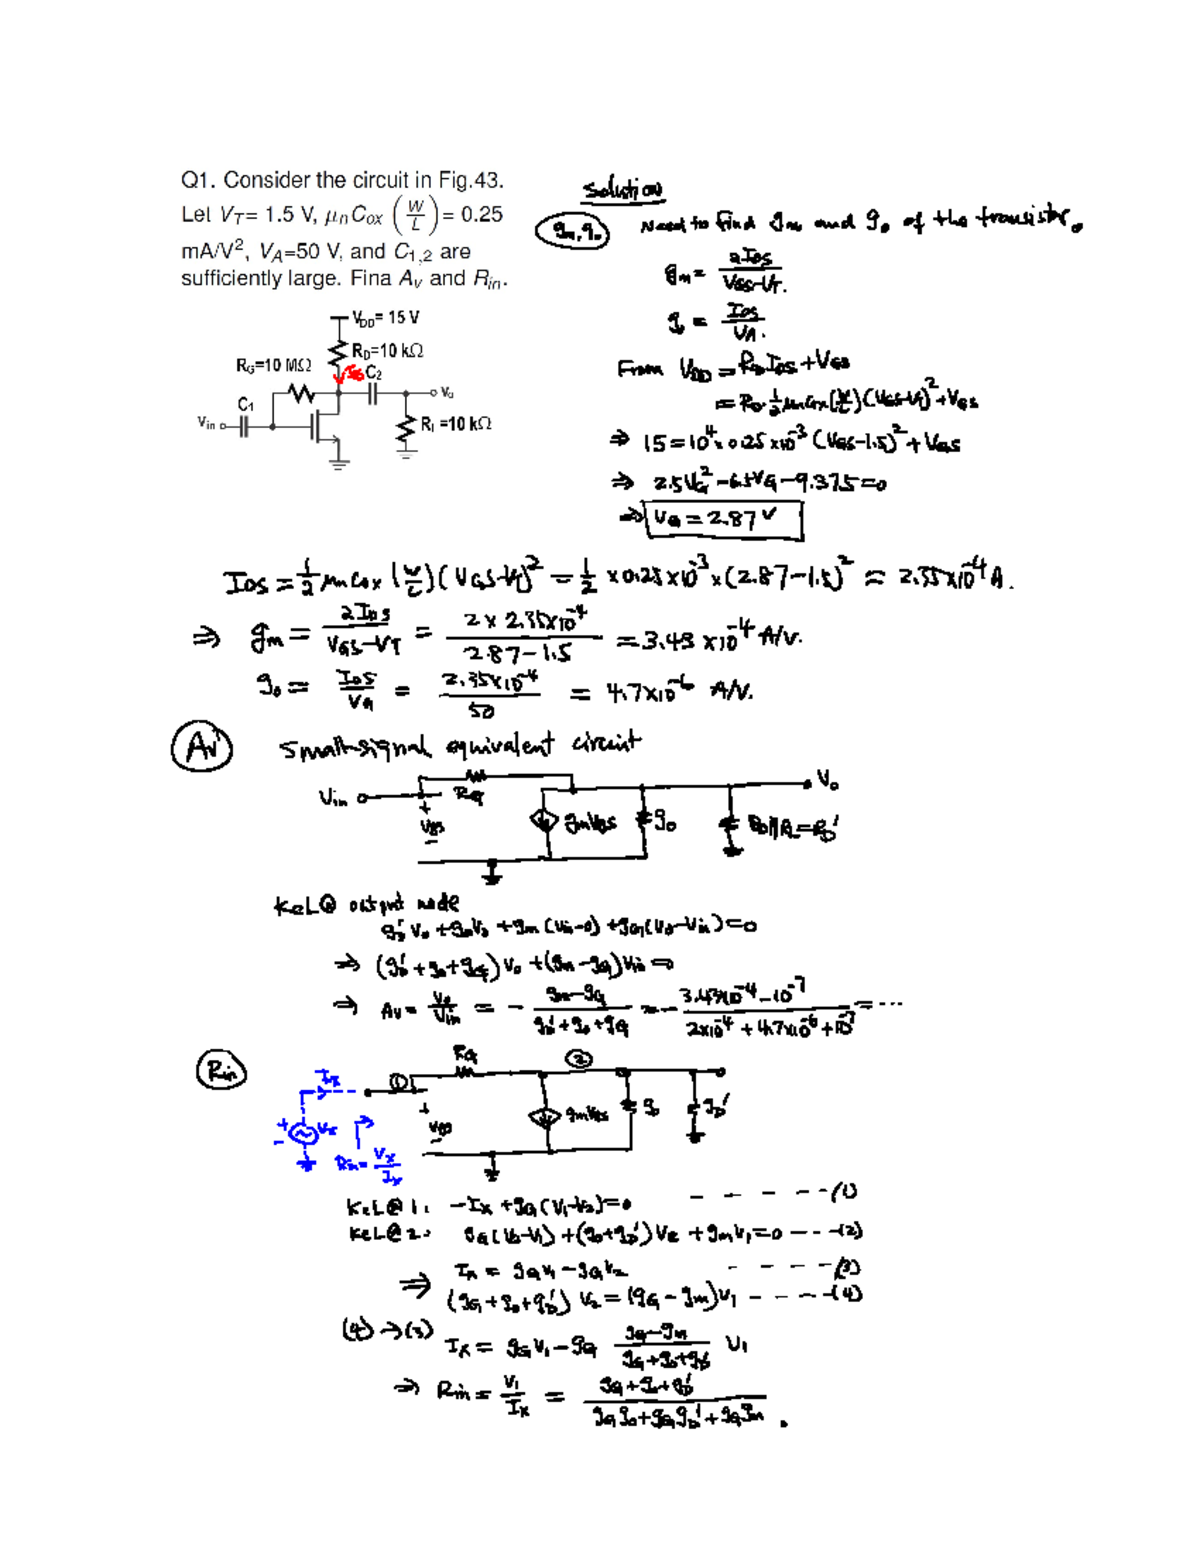 Q1. Consider the circuit in Fig.43.
Let V_T= 1.5 V, μ_nC_ox (W/L)= 0.25
mA/V², V_A=50 V, and C_1,2 are
sufficiently large. Fina A_v and R_in.
V_DD= 15 V
R_D=10 kΩ
R_G=10 MΩ
I_DS
C_2
C_1
V_o
V_in
R_L =10 kΩ
Solution
g_m, g_o Need to find g_m and g_o of the transistor.
g_m = 2I_DS / (V_GS-V_T).
g_o = I_DS / V_A.
From V_DD = R_D I_DS + V_GS
= R_D·½ μ_nC_ox(W/L)(V_GS-V_T)²+V_GS
⇒ 15 = 10⁴×0.25×10⁻³(V_GS-1.5)²+V_GS
⇒ 2.5V_G²-6.5V_G-9.375=0
⇒ V_G = 2.87 V
I_DS = ½ μ_nC_ox(W/L)(V_GS-V_T)² = ½ ×0.25×10⁻³×(2.87-1.5)² = 2.35×10⁻⁴A.
⇒ g_m = 2I_DS / (V_GS-V_T) = 2 × 2.35×10⁻⁴ / (2.87-1.5) = 3.43×10⁻⁴ A/V.
g_o = I_DS / V_A = 2.35×10⁻⁴ / 50 = 4.7×10⁻⁶ A/V.
A_v Small-signal equivalent circuit
V_in
R_G
V_o
+
V_gs
-
g_mV_gs
g_o
R_D//R_L=R_D'
KCL@ output node
g_D'V_o+g_oV_o+g_m(V_in-0)+g_G(V_o-V_in)=0
⇒ (g_D'+g_o+g_G)V_o+(g_m-g_G)V_in=0
⇒ A_v = V_o/V_in = - (g_m-g_G) / (g_D'+g_o+g_G) = - (3.43×10⁻⁴-10⁻⁷) / (2×10⁻⁴+4.7×10⁻⁶+10⁻⁷) = ...
R_in
R_G
②
I_x
①
+
V_gs
-
g_mV_gs
g_o
g_D'
+
-
V_x
R_in = V_x/I_x
KCL@1: -I_x+g_G(V_1-V_2)=0 -----(1)
KCL@2: g_G(V_2-V_1)+(g_o+g_D')V_2+g_mV_1=0 ---(2)
⇒ I_x = g_GV_1-g_GV_2 ----(3)
(g_G+g_o+g_D')V_2=(g_G-g_m)V_1 ----(4)
(4)→(3) I_x = g_GV_1-g_G (g_G-g_m) / (g_G+g_o+g_D') V_1
⇒ R_in = V_1/I_x = (g_G+g_o+g_D') / (g_Gg_o+g_Gg_D'+g_Gg_m).